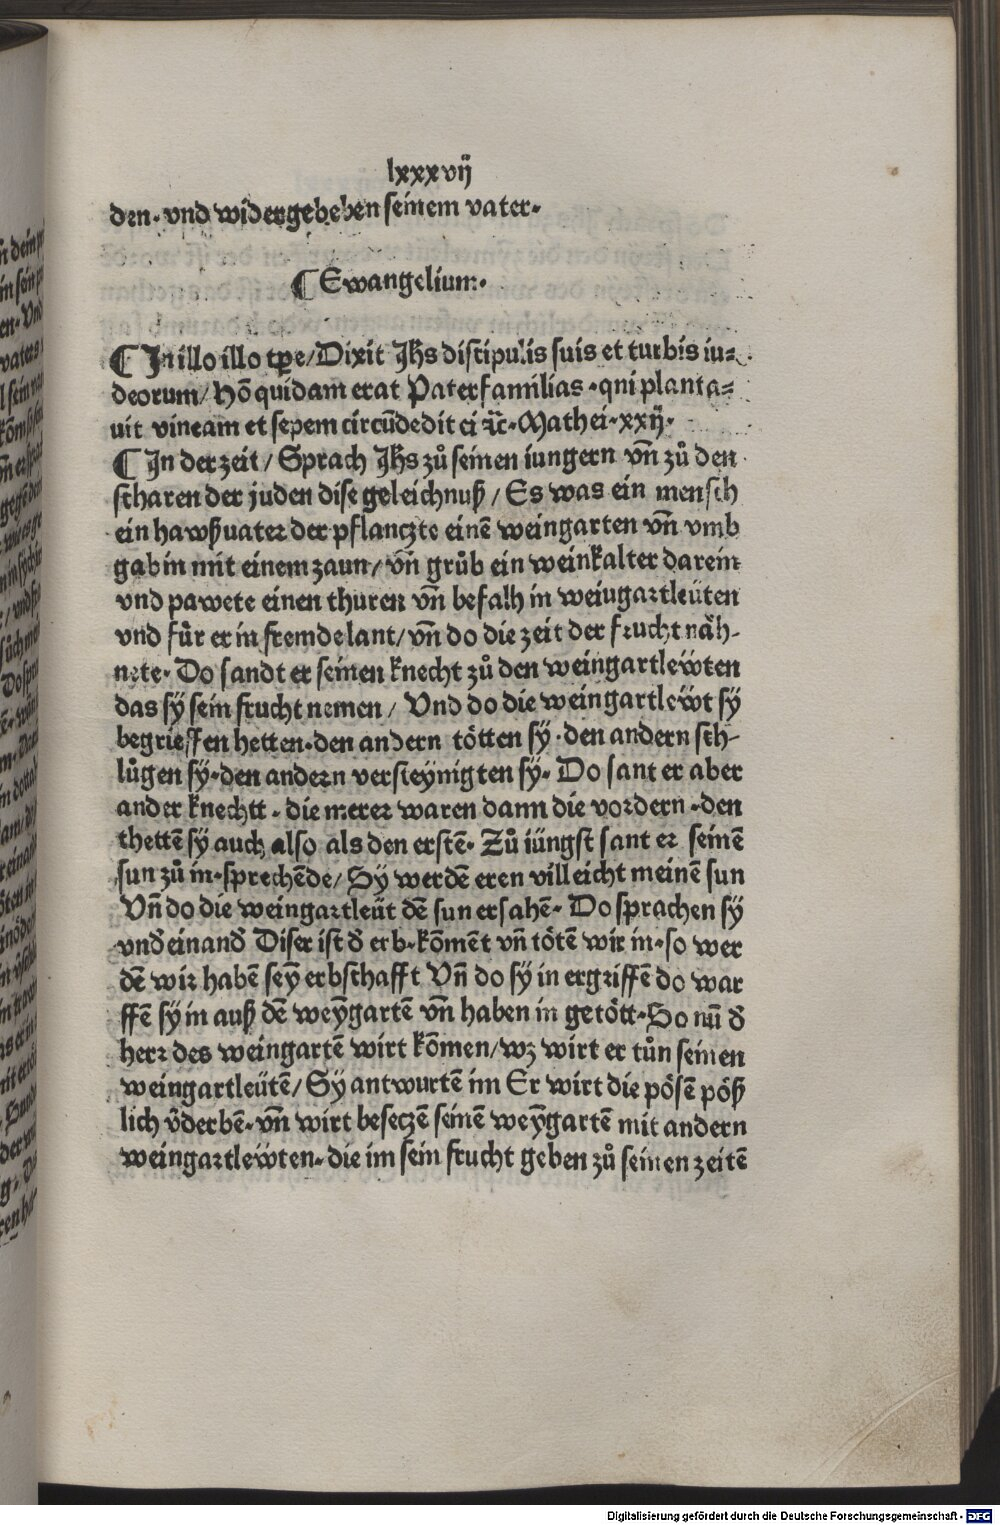 lxxxvij
den· vnd widergeheben seinem vater·
¶ Ewangelium·
¶ In illo illo tꝑe/ Dixit Jhs discipulis suis et turbis iu⸗
deorum/ Hō quidam erat Paterfamilias ·qni planta⸗
uit vineam et sepem circūdedit ei ꝛc̄·Mathei·xxij·
¶ In der zeit / Sprach Jhs zů seinen iungern vn̄ zů den
scharen der juden dise geleichnuß / Es was ein mensch
ein hawßuater der pflanczte einē weingarten vn̄ vmb
gab in mit einem zaun/ vn̄ grůb ein weinkalter darein
vnd pawete einen thuren vn̄ befalh in weiugartleüten
vnd fůr er in fremde lant/ vn̄ do die zeit der frucht näh⸗
nete· Do sandt er seinen knecht zů den weingartleẅten
das sÿ sein frucht nemen / Vnd do die weingartleẅt sÿ
begrieffen hetten·den andern tötten sÿ·den andern sch⸗
lůgen sÿ·den andern versteÿnigten sÿ· Do sant er aber
ander knechtt · die merer waren dann die vordern ·den
thettē sÿ auch also als den erstē· Zů iüngst sant er seinē
sun zů in·sprechēde/ Sÿ werdē eren villeicht meinē sun
Vn̄ do die weingartleüt dē sun ersahē· Do sprachen sÿ
vnđ einanđ Diser ist đ erb·kōmēt vn̄ tötē wir in·so wer
dē wir habē seÿ erbschafft Vn̄ do sÿ in ergriffē do war
ffē sÿ in auß dē weÿgartē vn̄ haben in getött·So nū đ
herr des weingartē wirt kōmen/wz wirt er tůn seinen
weingartleütē/ Sÿ antwurtē im Er wirt die pösē pöß
lich v̄derbē·vn̄ wirt beseczē seinē weÿgartē mit andern
weingartleẅten·die im sein frucht geben zů seinen zeitē
Digitalisierung gefördert durch die Deutsche Forschungsgemeinschaft - DFG